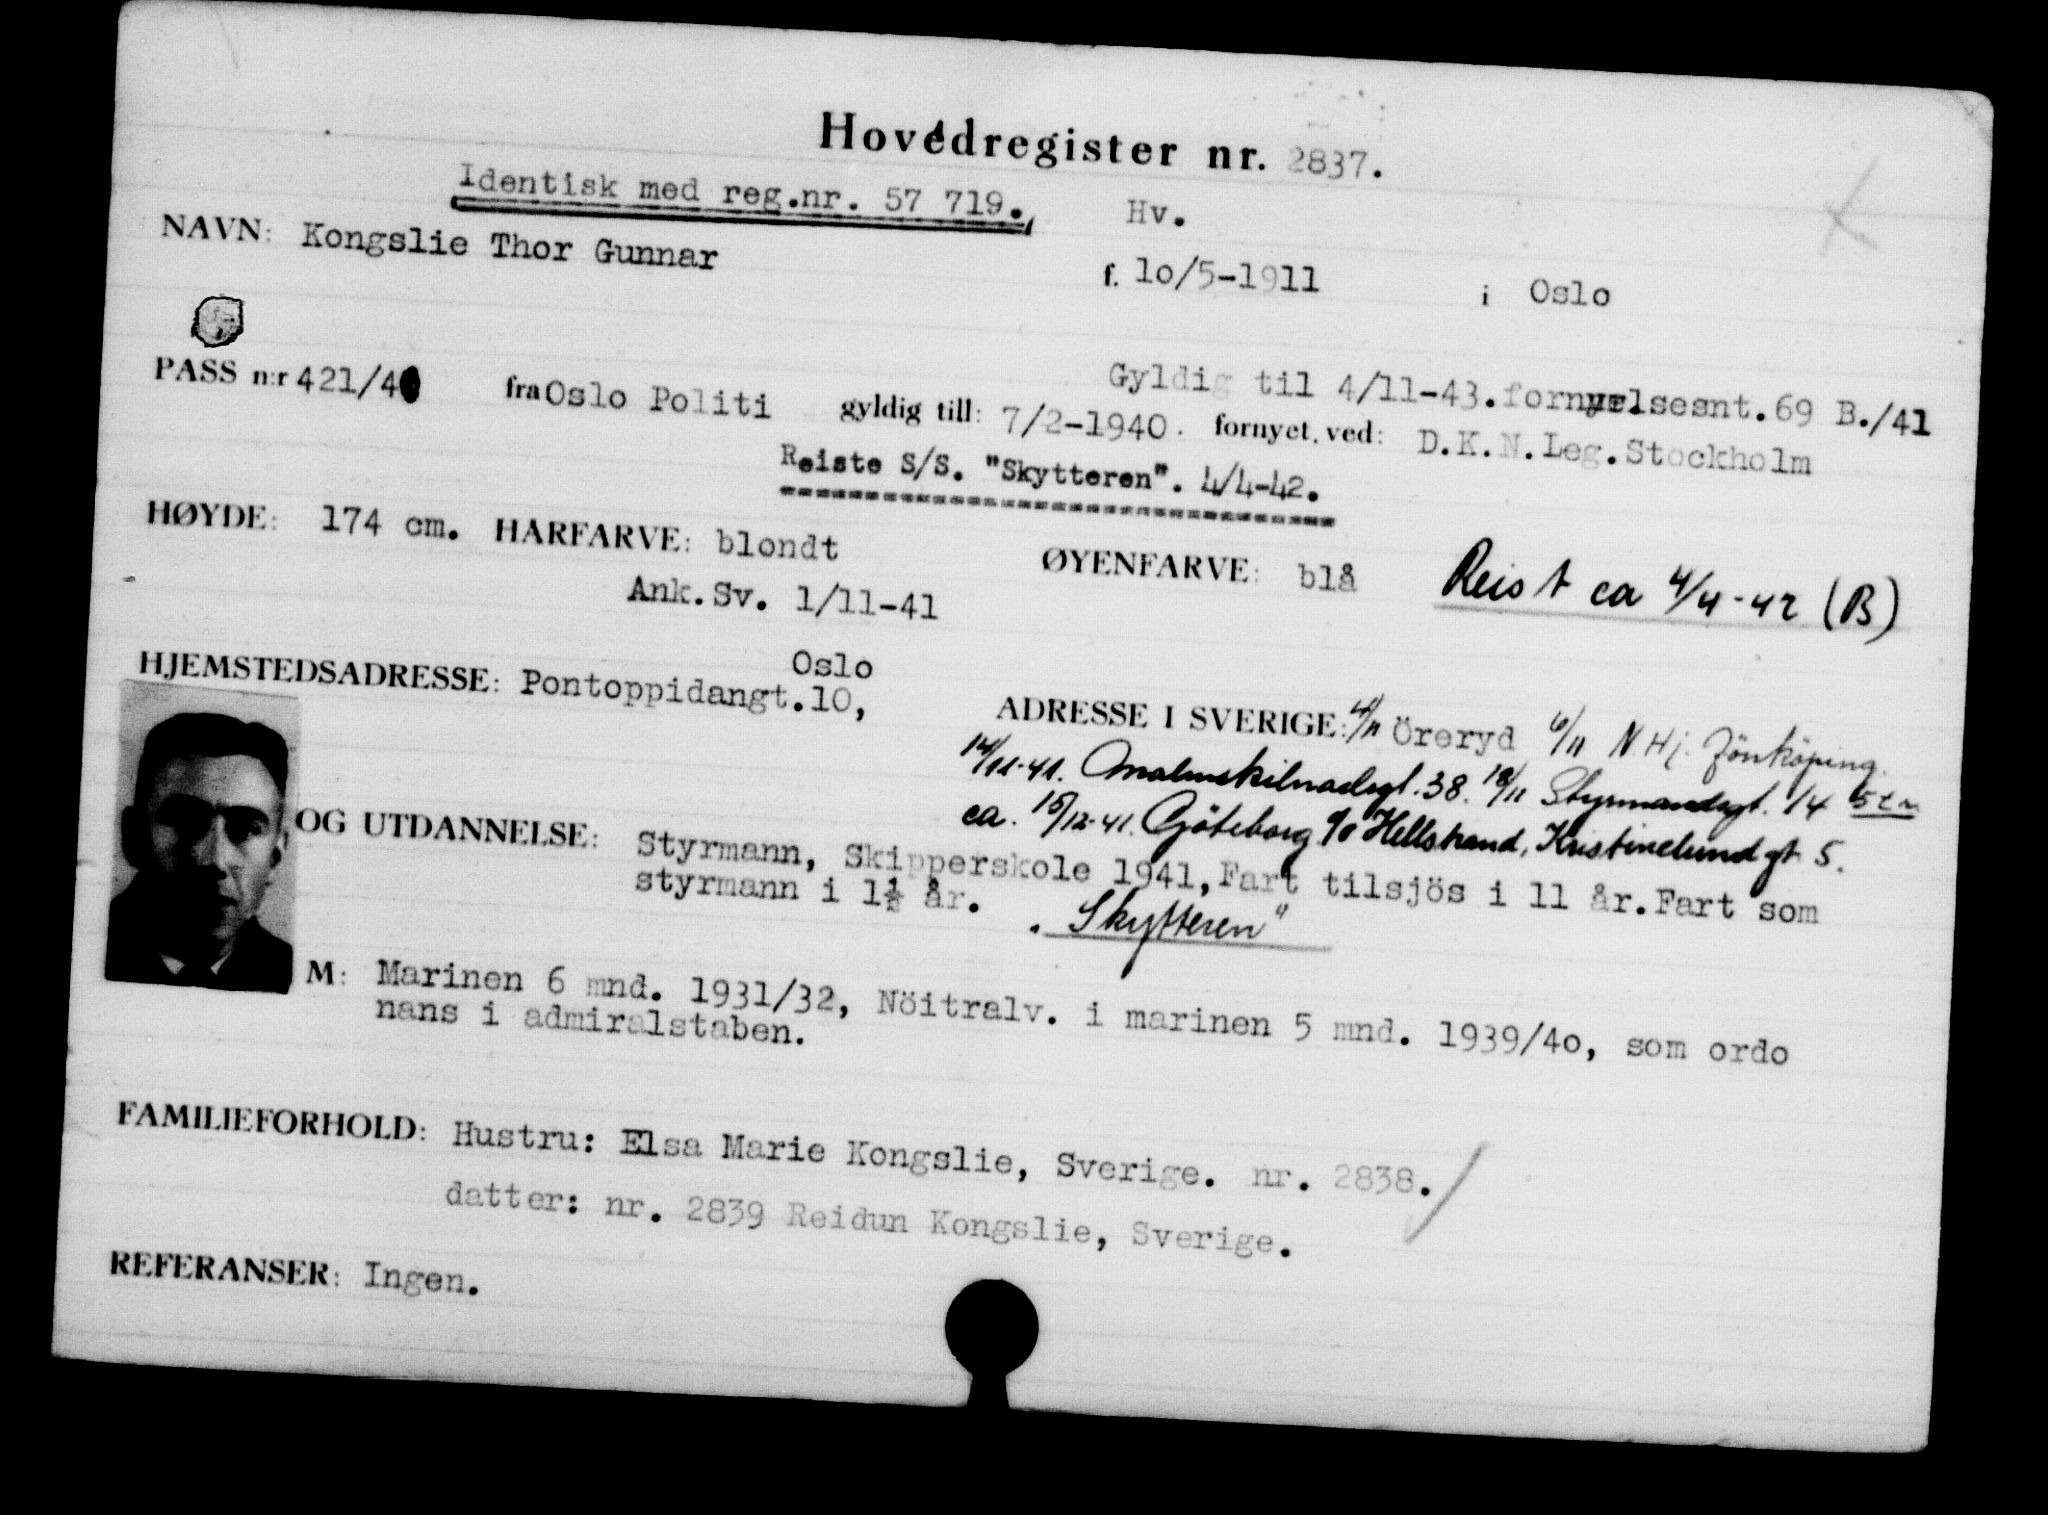 Hovedregister nr. 2837.
Identisk med reg.nr. 57 719. Hv.
NAVN: Kongslie Thor Gunnar f. 10/5-1911 i Oslo
Gyldig til 4/11-43. fornyelsesnt. 69 B./41
PASS n:r 421/40 fra Oslo Politi gyldig till: 7/2-1940. fornyet ved: D.K.N.Leg.Stockholm
Reiste S/S. "Skytteren". 4/4-42.
HØYDE: 174 cm. HÅRFARVE: blondt ØYENFARVE: blå Reist ca 4/4-42 (B)
Ank.Sv. 1/11-41
Oslo
HJEMSTEDSADRESSE: Pontoppidangt.10,
ADRESSE I SVERIGE: 4/11 Öreryd 6/11 N.Hj. Jönköping.
14/11-41. Malmskilnadsgt. 38. 18/11 Styrmandsgt. 14
ca. 15/12-41. Göteborg c/o Hellstrand, Kristinelundgt 5.
OG UTDANNELSE: Styrmann, Skipperskole 1941, Fart tilsjös i 11 år. Fart som
styrmann i 1½ år. "Skytteren"
M: Marinen 6 mnd. 1931/32, Nöitralv. i marinen 5 mnd. 1939/40, som ordo
nans i admiralstaben.
FAMILIEFORHOLD: Hustru: Elsa Marie Kongslie, Sverige. nr. 2838.
datter: nr. 2839 Reidun Kongslie, Sverige.
REFERANSER: Ingen.